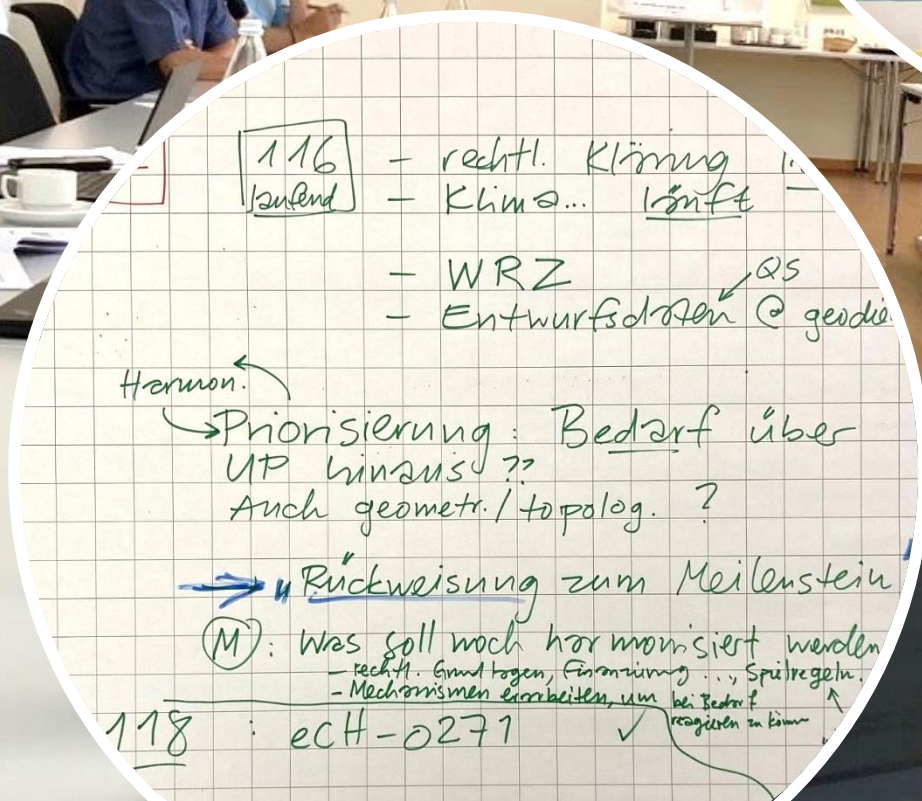 116 - rechtl. Klärung
laufend - Klima... läuft
- WRZ QS
- Entwurfsdaten @ geodie
Harmon.
Priorisierung: Bedarf über
UP hinaus ??
Auch geometr./topolog. ?
"Rückweisung" zum Meilenstein
M: Was soll noch harmonisiert werden
- rechtl. Grundlagen, Finanzierung ..., Spielregeln.
- Mechanismen einarbeiten, um bei Bedarf
reagieren zu könn
118 : eCH-0271 ✓